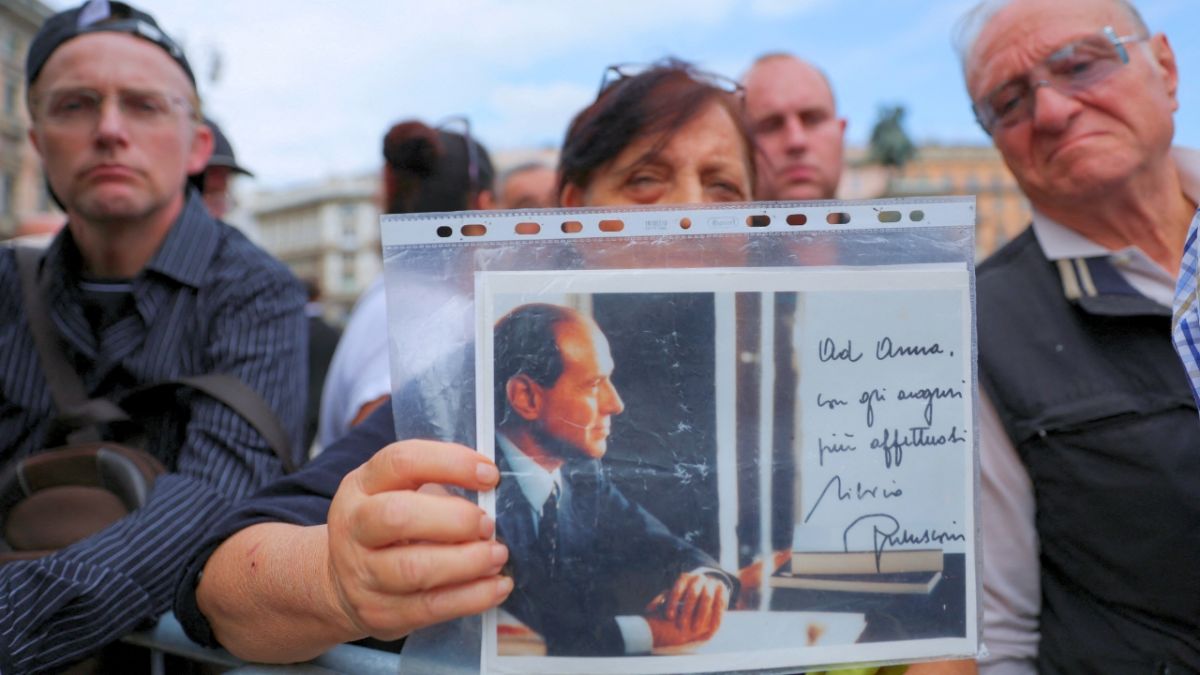 Ad Anna.
con gli auguri
più affettuosi
Silvio
Berlusconi